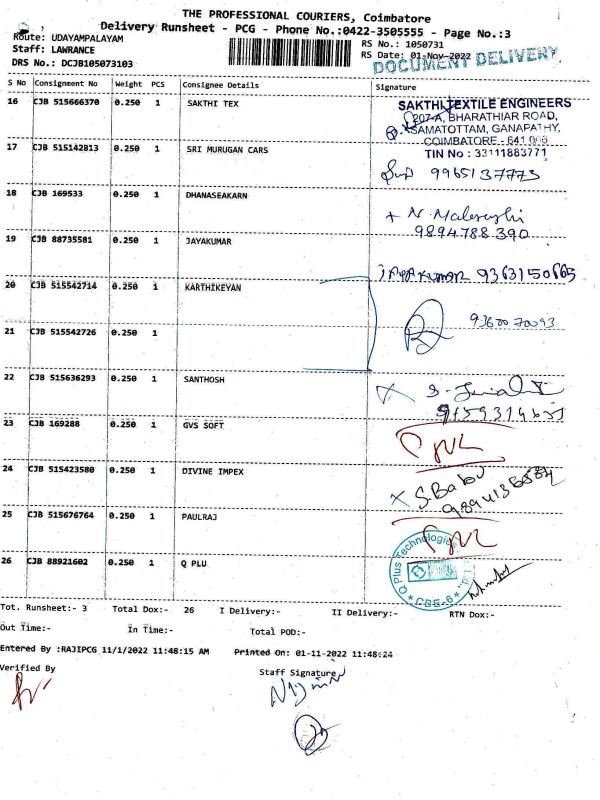 THE PROFESSIONAL COURIERS, Coimbatore
Delivery Runsheet - PCG - Phone No.:0422-3505555 - Page No.:3
Route: UDAYAMPALAYAM
RS No.: 1050731
Staff: LAWRANCE
RS Date: 01-Nov-2022
DOCUMENT DELIVERY
DRS No.: DCJB105073103
S No Consignment No Weight PCS Consignee Details Signature
16 CJB 515666370 0.250 1 SAKTHI TEX
SAKTHI TEXTILE ENGINEERS
207-A, BHARATHIAR ROAD,
SAMATOTTAM, GANAPATHY,
COIMBATORE - 641 006
TIN No : 33111883771
17 CJB 515142813 0.250 1 SRI MURUGAN CARS
9965137773
18 CJB 169533 0.250 1 DHANASEAKARN
9894788390
19 CJB 88735581 0.250 1 JAYAKUMAR
JAYAKUMAR 9363150665
20 CJB 515542714 0.250 1 KARTHIKEYAN
9360070093
21 CJB 515542726 0.250 1
22 CJB 515636293 0.250 1 SANTHOSH
23 CJB 169288 0.250 1 GVS SOFT
24 CJB 515423580 0.250 1 DIVINE IMPEX
S. Babu
25 CJB 515676764 0.250 1 PAULRAJ
26 CJB 88921602 0.250 1 Q PLU
Q Plus Technologies
CBE-6
Tot. Runsheet:- 3 Total Dox:- 26 I Delivery:- II Delivery:- RTN Dox:-
Out Time:- In Time:- Total POD:-
Entered By :RAJIPCG 11/1/2022 11:48:15 AM Printed On: 01-11-2022 11:48:24
Verified By Staff Signature